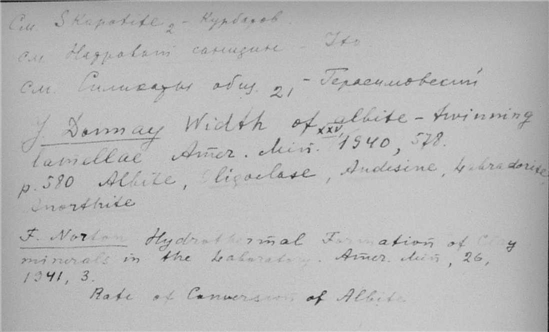 см. Skapolite 2 - Курбатов.
см. Натровый санидин - Ito
см. Силикаты общ. 21 - Герасимовский
J. Donnay Width of albite - twinning
lamellae Amer. Min. XXV, 1940, 578.
p. 580 Albite, Oligoclase, Andesine, Labradorite,
Anorthite
F. Norton Hydrothermal Formation of Clay
minerals in the Laboratory. Amer. Min, 26,
1941, 3.
Rate of Conversion of Albite